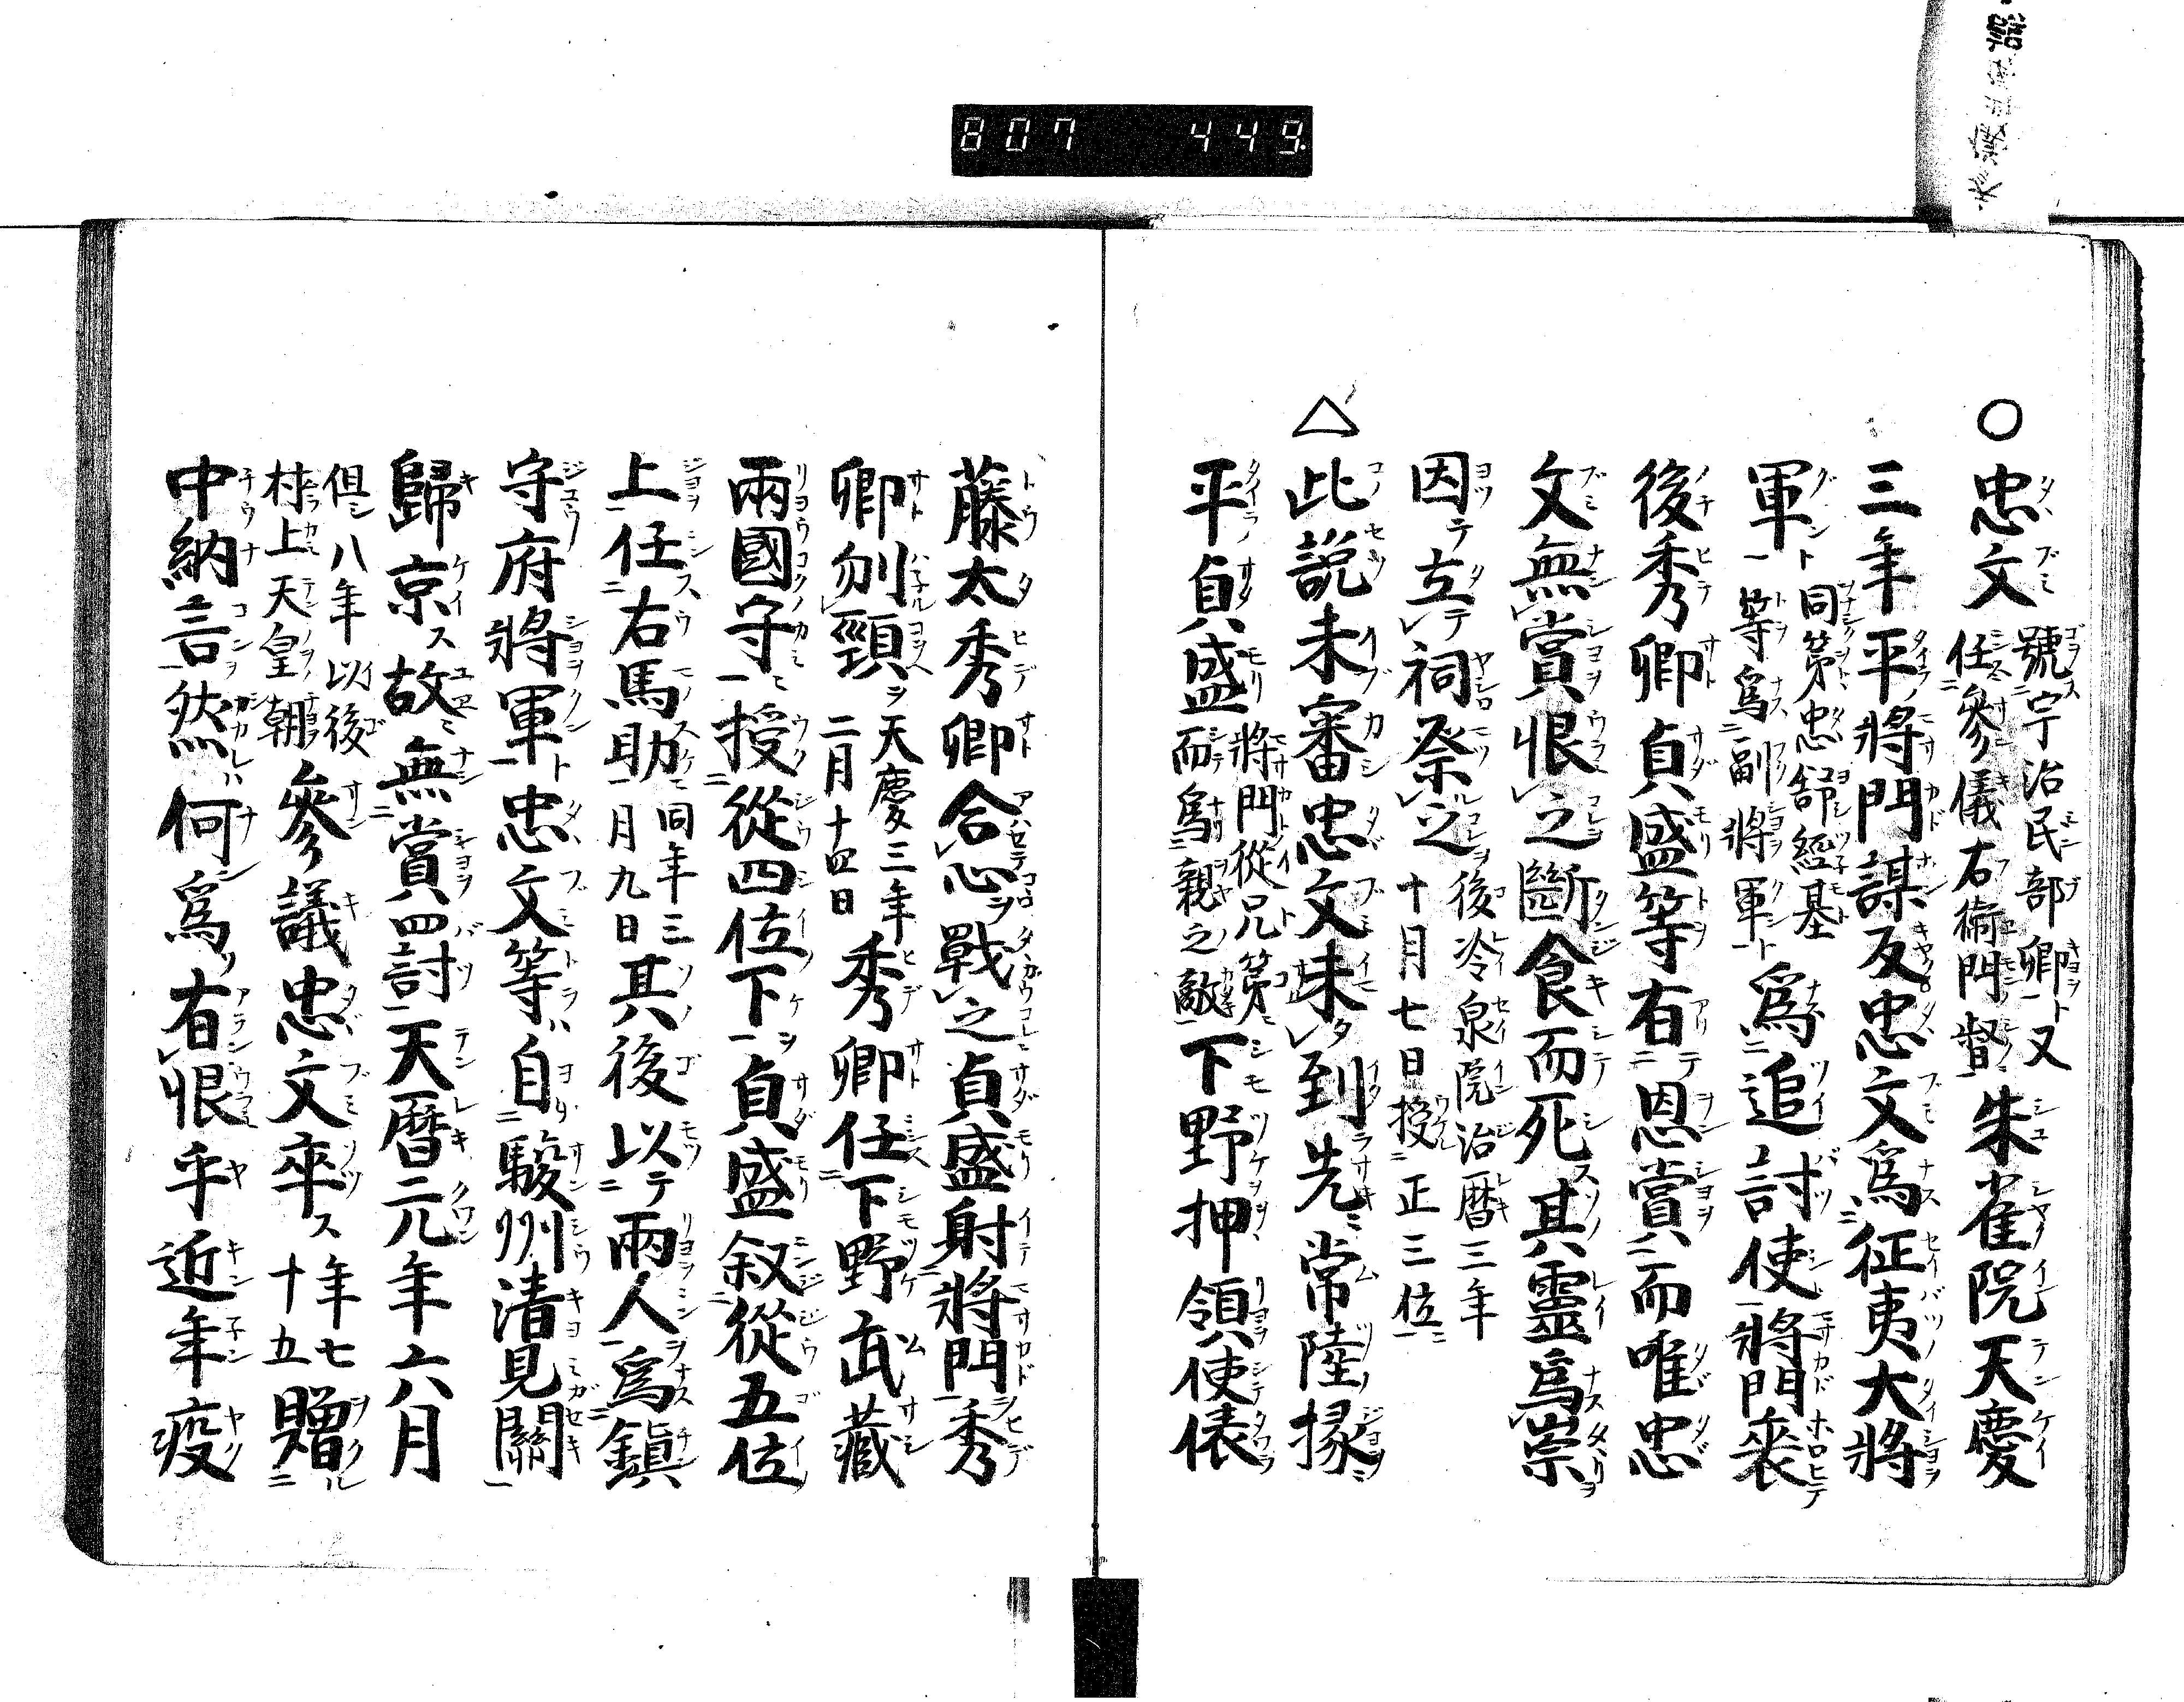 807 449
○忠文號宇治民部卿又任參儀右衛門督朱雀院天慶
三年平將門謀反忠文爲征夷大將
軍同第忠舒經基等爲副將軍爲追討使將門喪
後秀卿貞盛等有恩賞而唯忠
文無賞恨之斷食而死其靈爲崇
因立祠祭之後冷泉院治暦三年十月七日授正三位
△此説未審忠文未到先常陸掾
平貞盛將門從兄第而爲親之敵下野押領使俵
藤太秀卿合心戰之貞盛射將門秀
卿刎頸天慶三年二月十四日秀卿任下野武藏
兩國守授從四位下貞盛叙從五位
上任右馬助同年三月九日其後以兩人爲鎭
守府將軍忠文等自駿州清見關
歸京故無賞四討天暦元年六月
但八年以後村上天皇朝參議忠文卒年七十五贈
中納言然何爲有恨乎近年疫